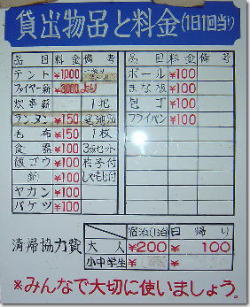 貸出物品と料金(1日1回当り)
品目 料金 備考
テント ¥1,000
ファイヤー薪 ¥3000より
炊事薪 1把
ランタン ¥150
毛布 ¥150 1枚
食器 ¥100 3点セット
飯ゴウ ¥100
¥100 しゃもじ付
ヤカン ¥100
バケツ ¥100
品目 料金 備考
ボール ¥100
まな板 ¥100
包丁 ¥100
フライパン ¥100
清掃協力費 宿泊(1泊 日帰り
大人 ¥200 ¥100
小中学生
※みんなで大切に使いましょう。